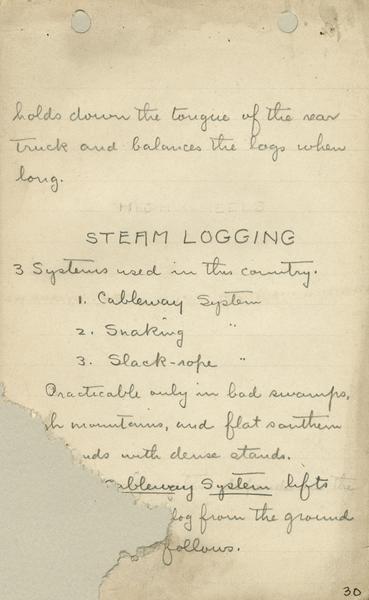 holds down the tongue of the rear
truck and balances the logs when
long.
STEAM LOGGING
3 Systems used in this country.
1. Cableway System
2. Snaking "
3. Slack-rope "
Practicable only in bad swamps,
h mountains, and flat southern
nds with dense stands.
ableway System lifts
log from the ground
follows.
30